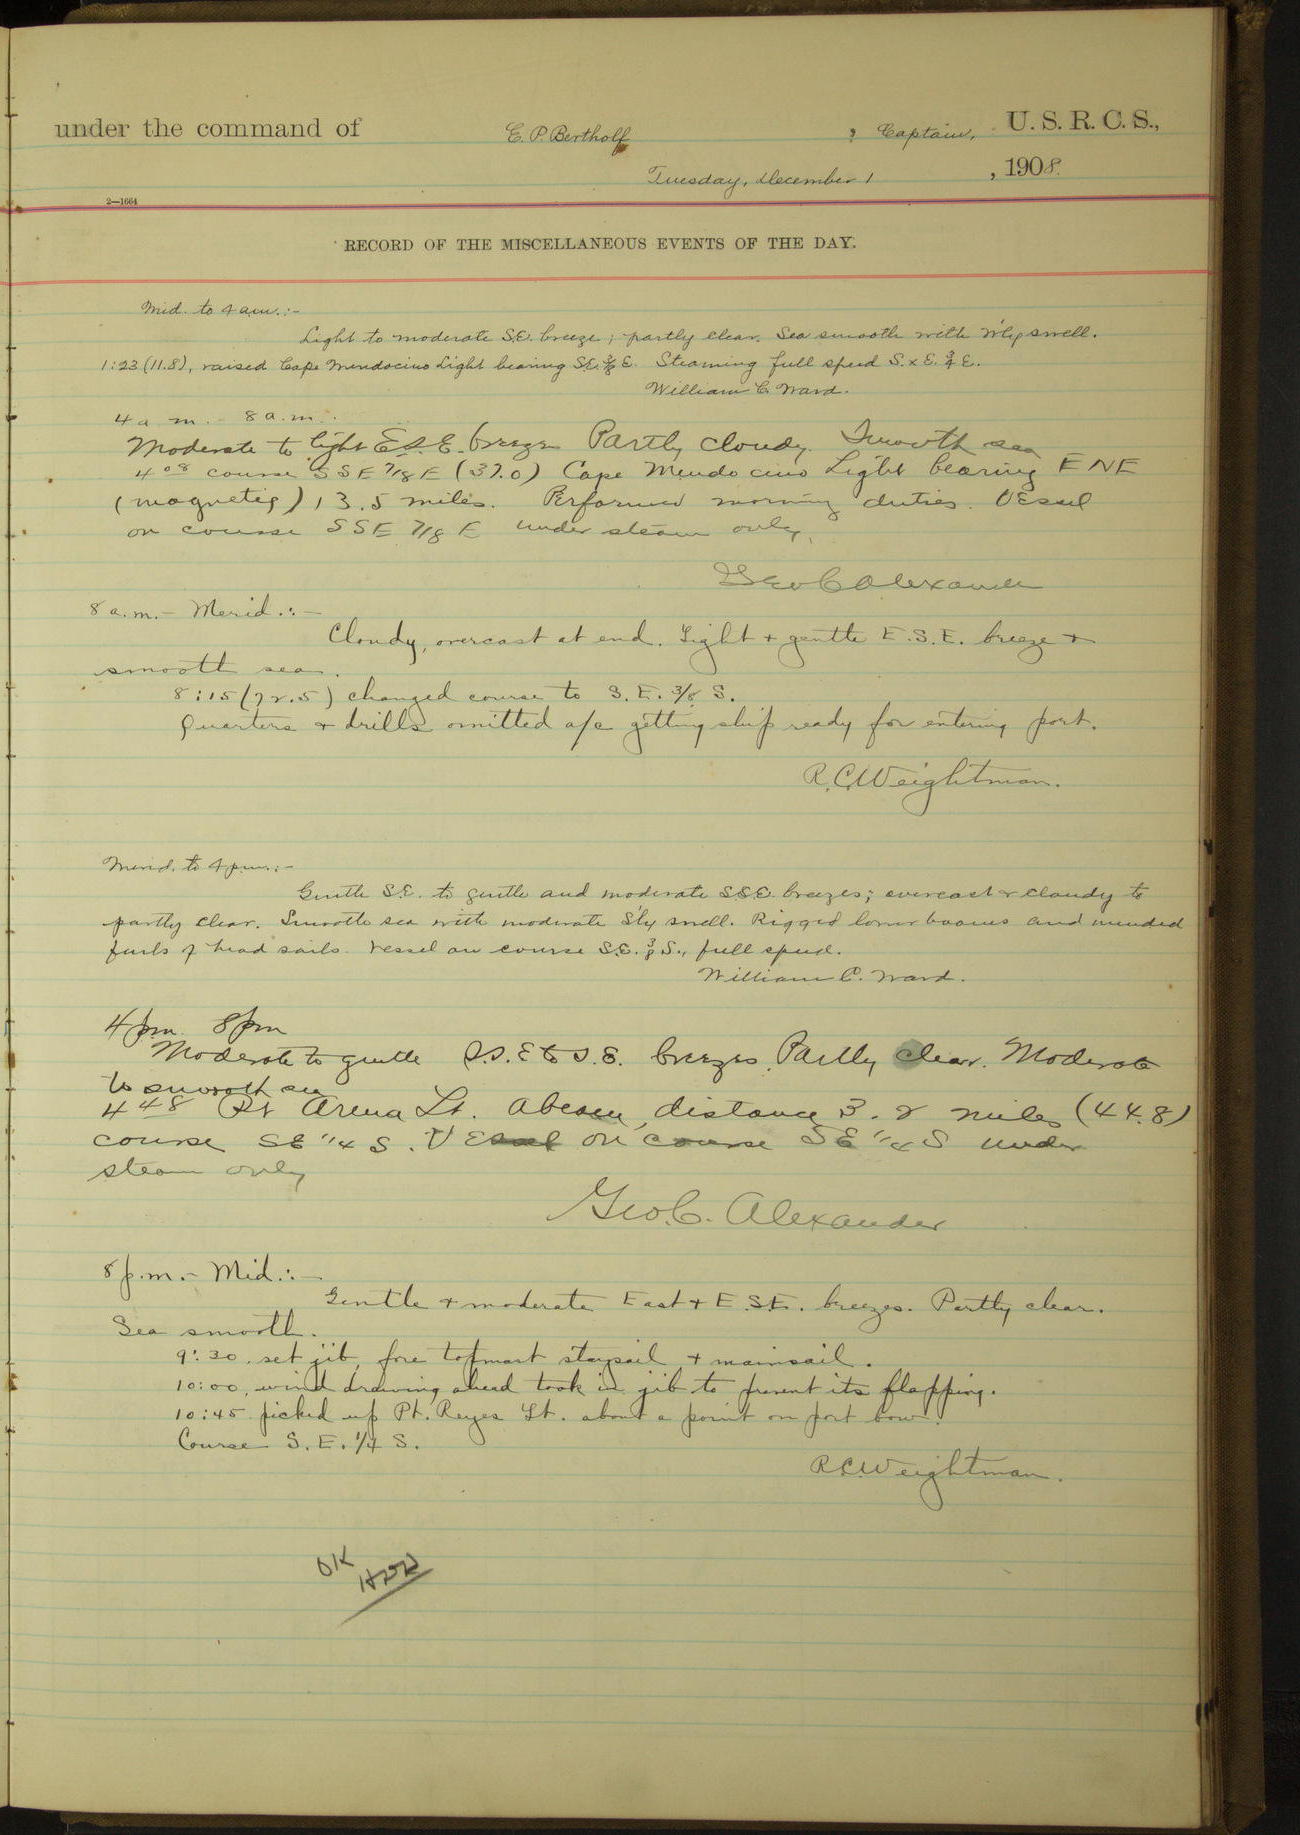 under the command of E. P. Bertholf, Captain, U. S. R. C. S.,
Tuesday, December 1, 1908.
2—1664
RECORD OF THE MISCELLANEOUS EVENTS OF THE DAY.
Mid. to 4 am.:-
Light to moderate S.E. breeze; partly clear. Sea smooth with W'ly swell.
1:23 (11.8), raised Cape Mendocino Light bearing S.E. 3/8 E. Steaming full speed S. x E. 3/4 E.
William C. Ward.
4 a m. - 8 a.m.
Moderate to light E.S.E. breeze Partly cloudy. Smooth sea
4 08 course SSE 7/8 E (37.0) Cape Mendocino Light bearing ENE
(magnetic) 13.5 miles. Performed morning duties. Vessel
on course SSE 7/8 E under steam only.
Geo C Alexander
8 a.m. - Merid.:-
Cloudy, overcast at end. Light + gentle E.S.E. breeze +
smooth sea.
8:15 (72.5) changed course to S.E. 3/8 S.
Quarters + drills omitted a/c getting ship ready for entering port.
R. C. Weightman.
Merid. to 4 pm.:-
Gentle S.E. to gentle and moderate SSE. breezes; overcast & cloudy to
partly clear. Smooth sea with moderate S'ly swell. Rigged lower booms and mended
furls of head sails. Vessel on course S.E. 3/8 S., full speed.
William C. Ward.
4 pm. 8 pm
Moderate to gentle S.S.E to S.E. breezes. Partly clear. Moderate
to smooth sea
4 48 Pt Arena Lt. abeam, distance 3.2 miles (44.8)
course SE 1/4 S. Vessel on course SE 1/4 S under
steam only
Geo. C. Alexander
8 p.m. - Mid.:-
Gentle + moderate East + E.S.E. breezes. Partly clear.
Sea smooth.
9:30, set jib, fore topmast staysail + mainsail.
10:00, wind drawing ahead took in jib to prevent its flapping.
10:45 picked up Pt. Reyes Lt. about a point on port bow.
Course S. E. 1/4 S.
R. C. Weightman.
OK